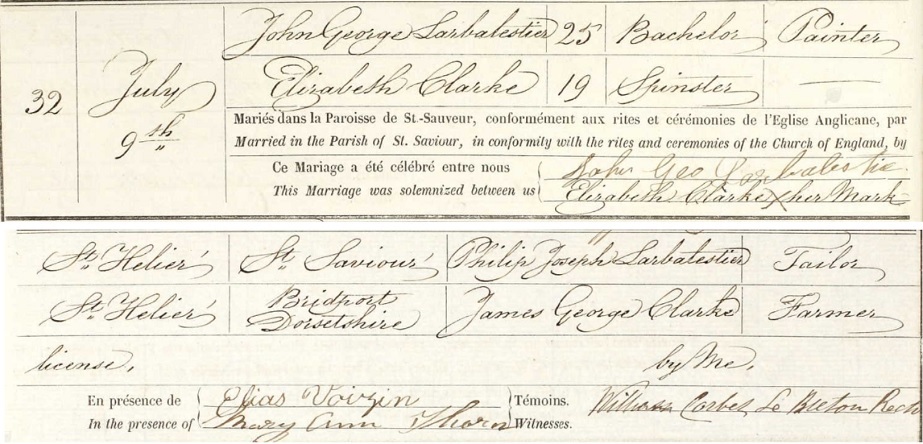 John George Larbalestier 25 Bachelor Painter
Elizabeth Clarke 19 Spinster —
32 July 9th
Mariés dans la Paroisse de St.-Sauveur, conformément aux rites et cérémonies de l'Eglise Anglicane, par
Married in the Parish of St. Saviour, in conformity with the rites and ceremonies of the Church of England, by
Ce Mariage a été célébré entre nous John Geo Larbalestie
This Marriage was solemnized between us Elizabeth Clarke X her Mark
St. Helier St. Saviour Philip Joseph Larbalestier Tailor
St. Helier Bridport Dorsetshire James George Clarke Farmer
license, by Me,
En présence de Elias Voizin Témoins. William Corbet Le Breton Rect
In the presence of Mary Ann Thorn Witnesses.